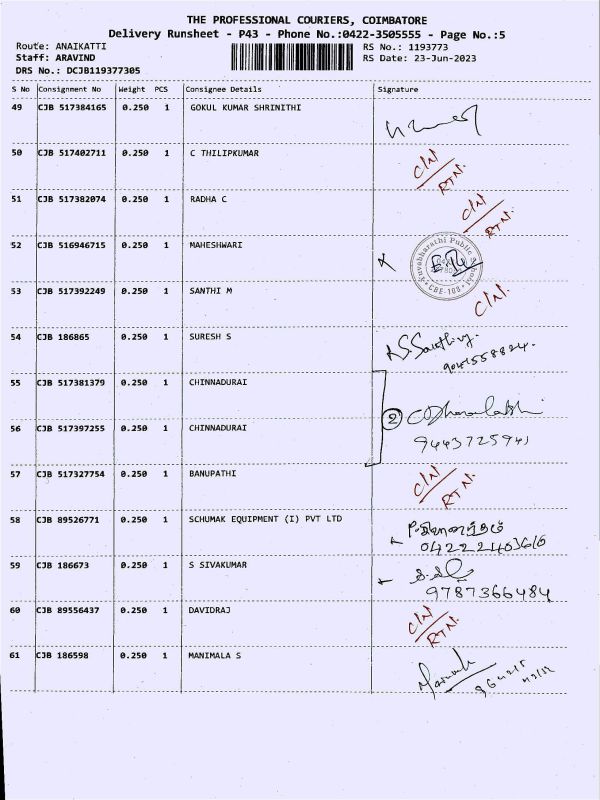 THE PROFESSIONAL COURIERS, COIMBATORE
Delivery Runsheet - P43 - Phone No.:0422-3505555 - Page No.:5
Route: ANAIKATTI RS No.: 1193773
Staff: ARAVIND RS Date: 23-Jun-2023
DRS No.: DCJB119377305
S No Consignment No Weight PCS Consignee Details Signature
49 CJB 517384165 0.250 1 GOKUL KUMAR SHRINITHI
50 CJB 517402711 0.250 1 C THILIPKUMAR C/N/
RTN.
51 CJB 517382074 0.250 1 RADHA C C/N/
RTN.
52 CJB 516946715 0.250 1 MAHESHWARI
53 CJB 517392249 0.250 1 SANTHI M C/N/.
54 CJB 186865 0.250 1 SURESH S
55 CJB 517381379 0.250 1 CHINNADURAI
2
56 CJB 517397255 0.250 1 CHINNADURAI 9443725941
57 CJB 517327754 0.250 1 BANUPATHI C/N/
RTN.
58 CJB 89526771 0.250 1 SCHUMAK EQUIPMENT (I) PVT LTD
04222403616
59 CJB 186673 0.250 1 S SIVAKUMAR
9787366484
60 CJB 89556437 0.250 1 DAVIDRAJ C/N/
RTN.
61 CJB 186598 0.250 1 MANIMALA S